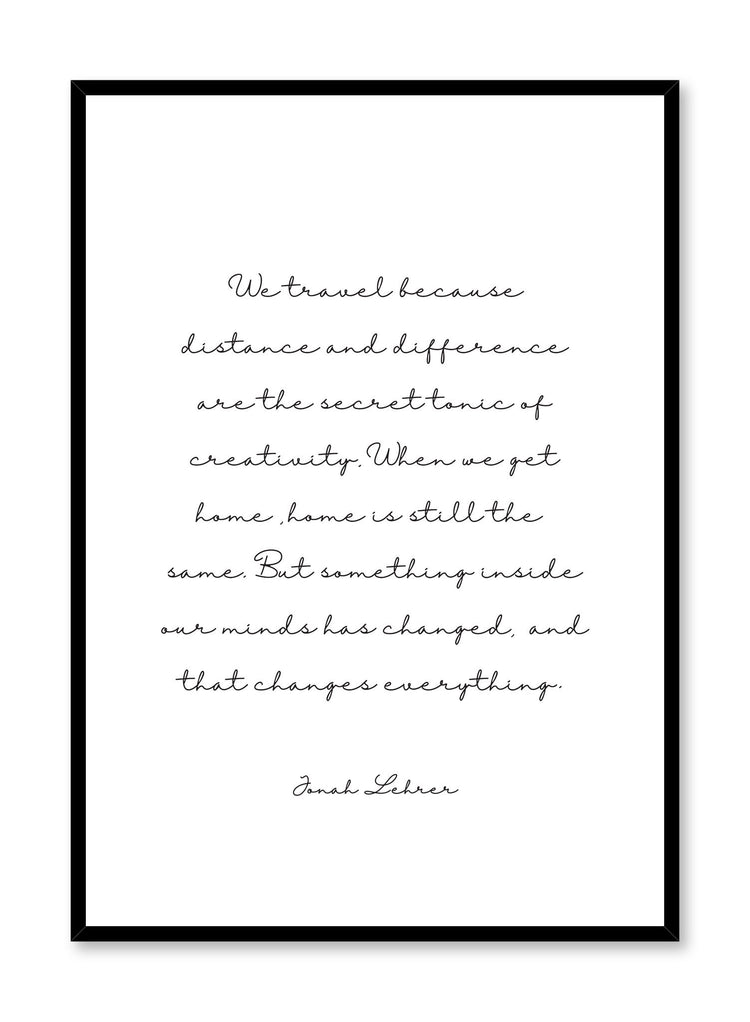 We travel because
distance and difference
are the secret tonic of
creativity. When we get
home ,home is still the
same. But something inside
our minds has changed, and
that changes everything.
Jonah Lehrer